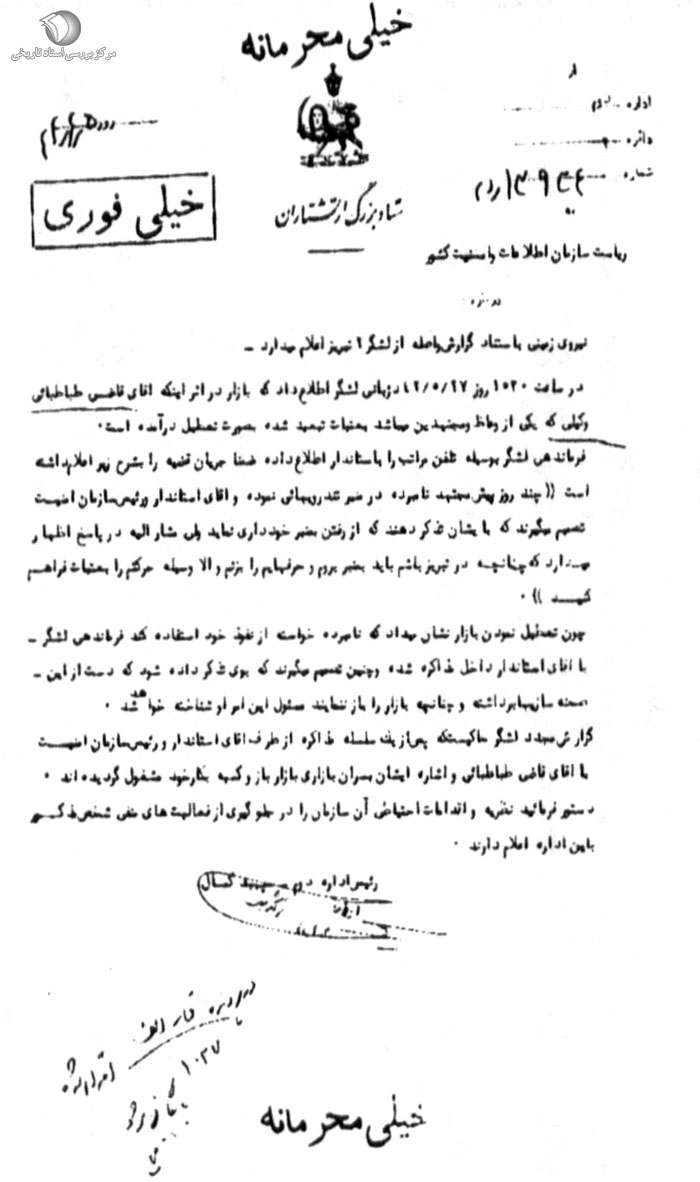 مرکز بررسی اسناد تاریخی
خیلی محرمانه
از
اداره دوم
دائره
شماره
خیلی فوری
ستاد بزرگ ارتشتاران
ریاست سازمان اطلاعات و امنیت کشور
درباره :
نیروی زمینی باستناد گزارش واصله از لشگر ۲ تبریز اعلام میدارد -
در ساعت ۱۰۳۰ روز دژبانی لشگر اطلاع داد که بازار در اثر اینکه اقای قاضی طباطبائی
وکیلی که یکی از وعاظ ومجتهدین میباشد بعتبات تبعید شده بصورت تعطیل درآمده است.
فرماندهی لشگر بوسیله تلفن مراتب را باستاندار اطلاع داده ضمنا جریان قضیه را بشرح زیر اعلام داشته
است (( چند روز پیش مجتهد نامبرده در منبر تندرویهائی نموده و اقای استاندار ورئیس سازمان امنیت
تصمیم میگیرند که بایشان تذکر دهند که از رفتن بمنبر خودداری نماید ولی مشارالیه در پاسخ اظهار
میدارد که چنانچه در تبریز باشم باید بمنبر بروم و حرفهایم را بزنم و الا وسیله حرکتم را بعتبات فراهم
کنید )) .
چون تعطیل نمودن بازار نشان میداد که نامبرده خواسته از نفوذ خود استفاده کند فرماندهی لشگر -
با اقای استاندار داخل مذاکره شده وچنین تصمیم میگیرند که بوی تذکر داده شود که دست از این -
صحنه سازیها برداشته و چنانچه بازار را باز ننمایند مسئول این امر او شناخته خواهد شد .
گزارش مجدد لشگر حاکیستکه پس از یک سلسله مذاکره از طرف اقای استاندار و رئیس سازمان امنیت
با اقای قاضی طباطبائی و اشاره ایشان بسران بازاری بازار باز و کسبه بکار خود مشغول گردیده اند .
دستور فرمائید نظریه و اقدامات احتیاطی آن سازمان را در جلوگیری از فعالیت های منفی شخص مذکور
باین اداره اعلام دارند .
رئیس اداره دوم - سپهبد کمال
۱۰۳۷
خیلی محرمانه